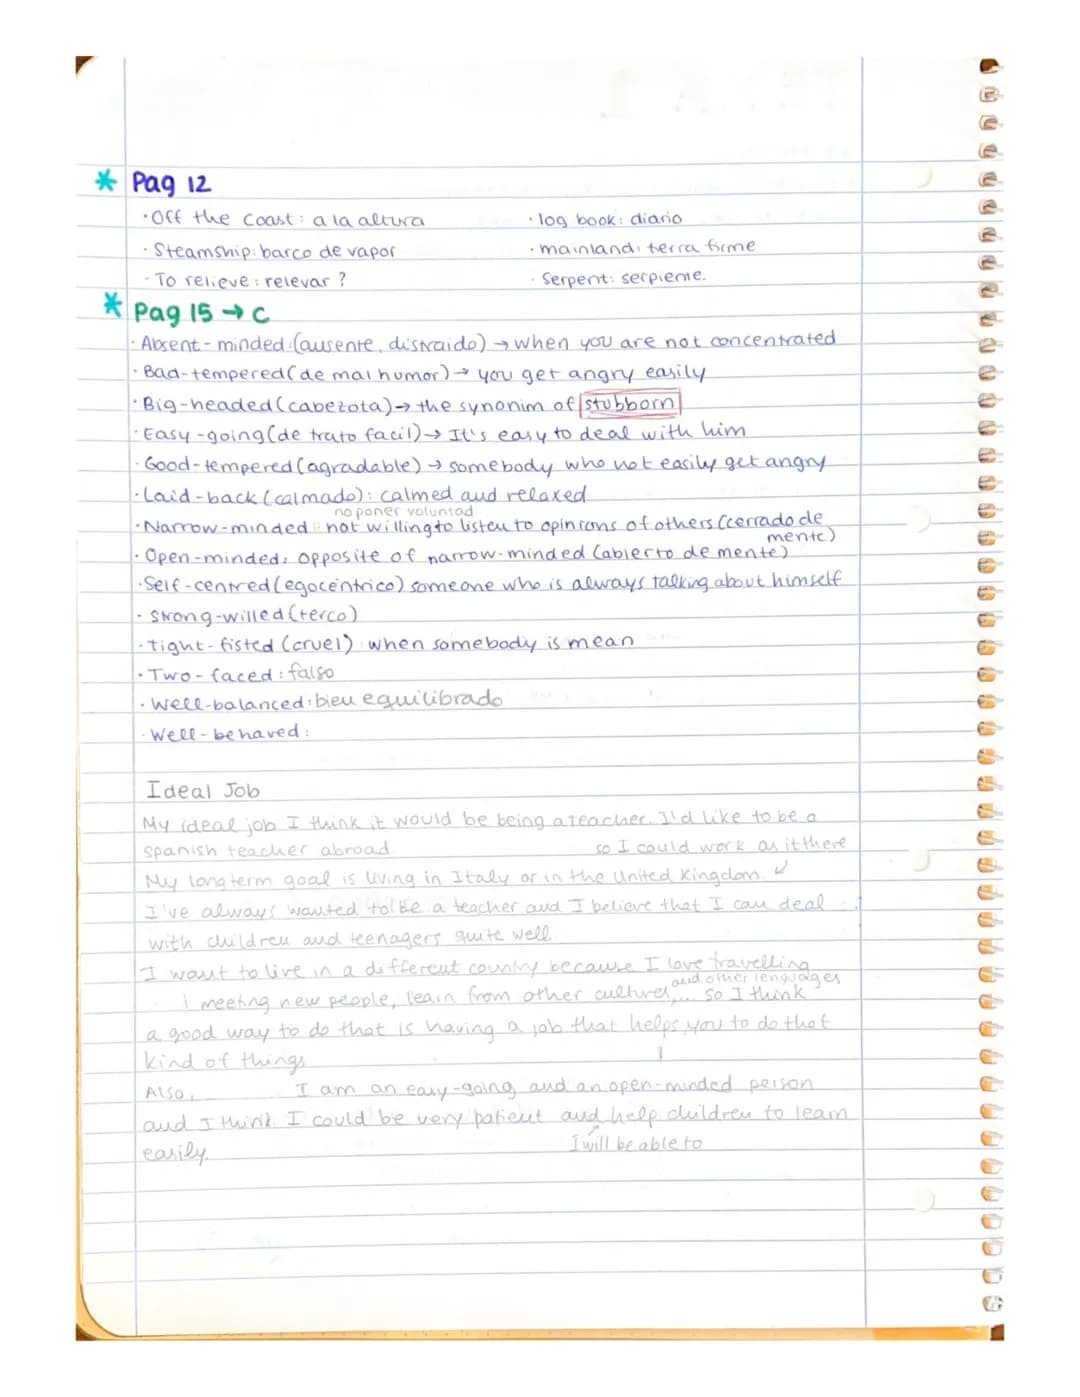 * Pag 12
· Off the coast: a la altura
· log book: diario
· Steamship: barco de vapor
· mainland: terra firme
· To relieve: relevar ?
· Serpent: serpiente.
* Pag 15 → C
· Absent-minded (ausente, distraido) → when you are not concentrated
· Bad-tempered (de mal humor) → you get angry easily
· Big-headed (cabezota) → the synonim of stubborn
· Easy-going (de trato facil) → It's easy to deal with him
· Good-tempered (agradable) → somebody who not easily get angry
· Laid-back (calmado): calmed and relaxed
no poner voluntad
· Narrow-minded: not willing to listen to opinions of others (cerrado de mente)
· Open-minded: opposite of narrow-minded (abierto de mente)
· Self-centred (egocéntrico) someone who is always talking about himself
· Strong-willed (terco)
· Tight-fisted (cruel) when somebody is mean
· Two-faced: falso
· Well-balanced: bien equilibrado
· Well-behaved:
Ideal Job
My ideal job I think it would be being a teacher. I'd like to be a
spanish teacher abroad.
so I could work as it there
My long term goal is living in Italy or in the United Kingdom.
I've always wanted to be a teacher and I believe that I can deal
with children and teenagers quite well.
I want to live in a different country because I love travelling
and other lenguages
meeting new people, learn from other cultures,... so I think
a good way to do that is having a job that helps you to do that
kind of things
Also, I am an easy-going and an open-minded person
and I think I could be very patient and help children to learn
I will be able to
easily.